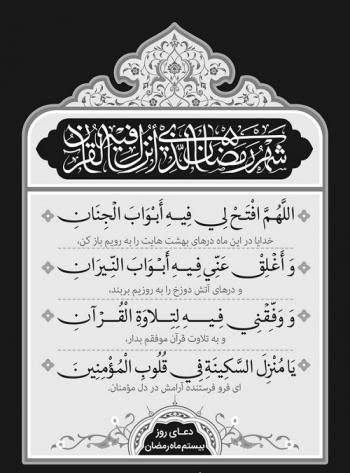 شهر رمضان الذي أنزل فيه القرآن
اللَّهُمَّ افْتَحْ لِي فِيهِ أَبْوَابَ الْجِنَانِ
خدایا در این ماه درهای بهشت هایت را به رویم باز کن،
وَ أَغْلِقْ عَنِّي فِيهِ أَبْوَابَ النِّيرَانِ
و درهای آتش دوزخ را به روزیم بربند،
وَ وَفِّقْنِي فِيهِ لِتِلَاوَةِ الْقُرْآنِ
و به تلاوت قرآن موفقم بدار،
يَا مُنْزِلَ السَّكِينَةِ فِي قُلُوبِ الْمُؤْمِنِينَ
ای فرو فرستنده آرامش در دل مؤمنان.
دعای روز
بیستم ماه رمضان